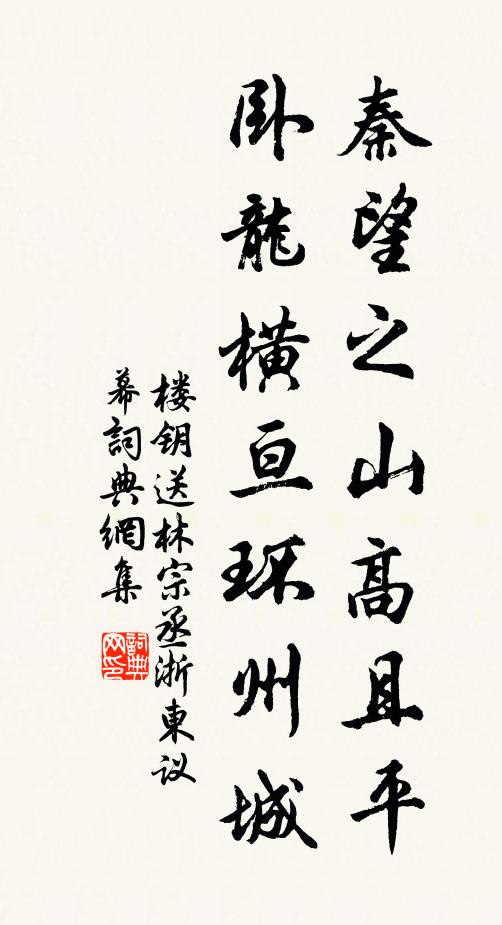 秦望之山高且平
卧龍横亘环州城
楼钥送林宗丞浙東议
幕詞典網集
詞典网印